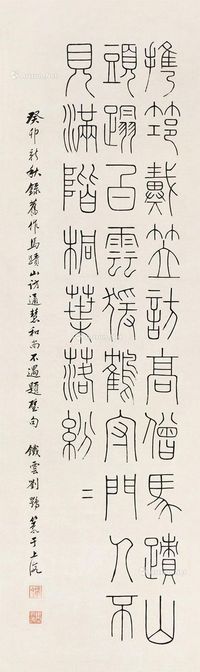 攜筇戴笠訪高僧馬蹟山
頭蹋白雲猨鶴守門人不
見滿階桐葉落紛二
癸卯新秋錄舊作馬蹟山訪通慧和尚不遇題壁句 鐵雲劉鶚篆于上海